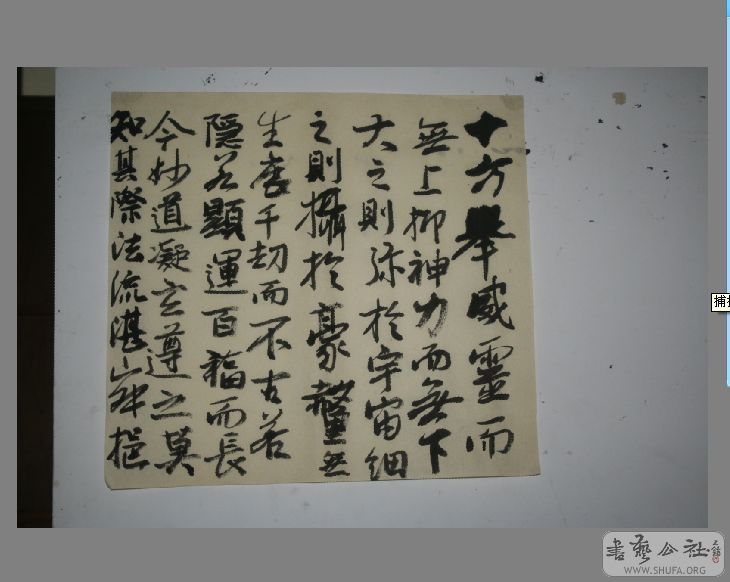 十方舉威靈而
無上抑神力而無下
大之則弥於宇宙細
之則攝於豪釐無
生歷千劫而不古若
隱若顯運百福而長
今妙道凝玄遵之莫
知其際法流湛寂挹
捕
書藝公社
WWW.SHUFA.ORG